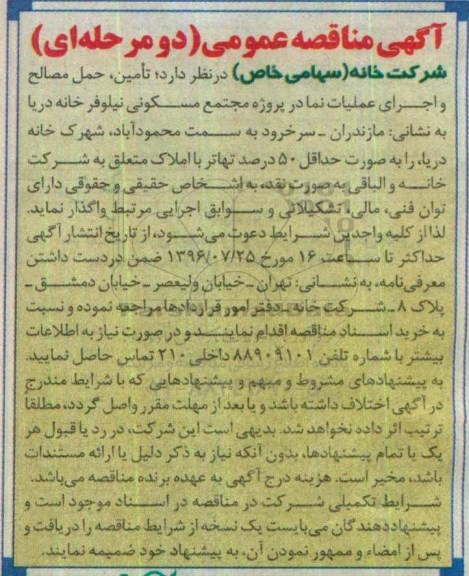 آگهی مناقصه عمومی (دو مرحله‌ای)
شرکت خانه (سهامی خاص) در نظر دارد؛ تأمین، حمل مصالح
و اجـــرای عملیات نما در پروژه مجتمع مسـکونی نیلوفر خانه دریا
به نشانی: مازندران ـ سرخرود به سـمت محمودآباد، شهرک خانه
دریا، را به صورت حداقل ۵۰ درصد تهاتر با املاک متعلق به شـرکت
خانـــه و الباقی به صورت نقد، به اشـخاص حقیقی و حقوقی دارای
توان فنی، مالی، تشکیلاتی و سـوابق اجرایی مرتبط واگذار نماید.
لذا از کلیه واجدین شـرایط دعوت می‌شـود، از تاریخ انتشار آگهی
حداکثر تا ساعت ۱۶ مورخ ۱۳۹۶/۰۷/۲۵ ضمن در دست داشتن
معرفی‌نامه، به نشـانی: تهران ـ خیابان ولیعصر ـ خیابان دمشق ـ
پلاک ۸ ـ شـرکت خانه ـ دفتر امور قراردادها مراجعه نموده و نسبت
به خرید اسـناد مناقصه اقدام نمایند و در صورت نیاز به اطلاعات
بیشتر با شماره تلفن ۸۸۹۰۹۱۰۱ داخلی ۲۱۰ تماس حاصل نمایید.
به پیشنهادهای مشروط و مبهم و پیشنهادهایی که با شرایط مندرج
در آگهی اختلاف داشته باشد و یا بعد از مهلت مقرر واصل گردد، مطلقاً
ترتیب اثر داده نخواهد شد. بدیهی است این شرکت، در رد یا قبول هر
یک یا تمام پیشنهادها، بدون آنکه نیاز به ذکر دلیل یا ارائه مستندات
باشد، مخیر است. هزینه درج آگهی به عهده برنده مناقصه می‌باشد.
شـــرایط تکمیلی شـرکت در مناقصه در اسـناد موجود است و
پیشنهاددهندگان می‌بایست یک نسخه از شرایط مناقصه را دریافت و
پس از امضاء و ممهور نمودن آن، به پیشنهاد خود ضمیمه نمایند.